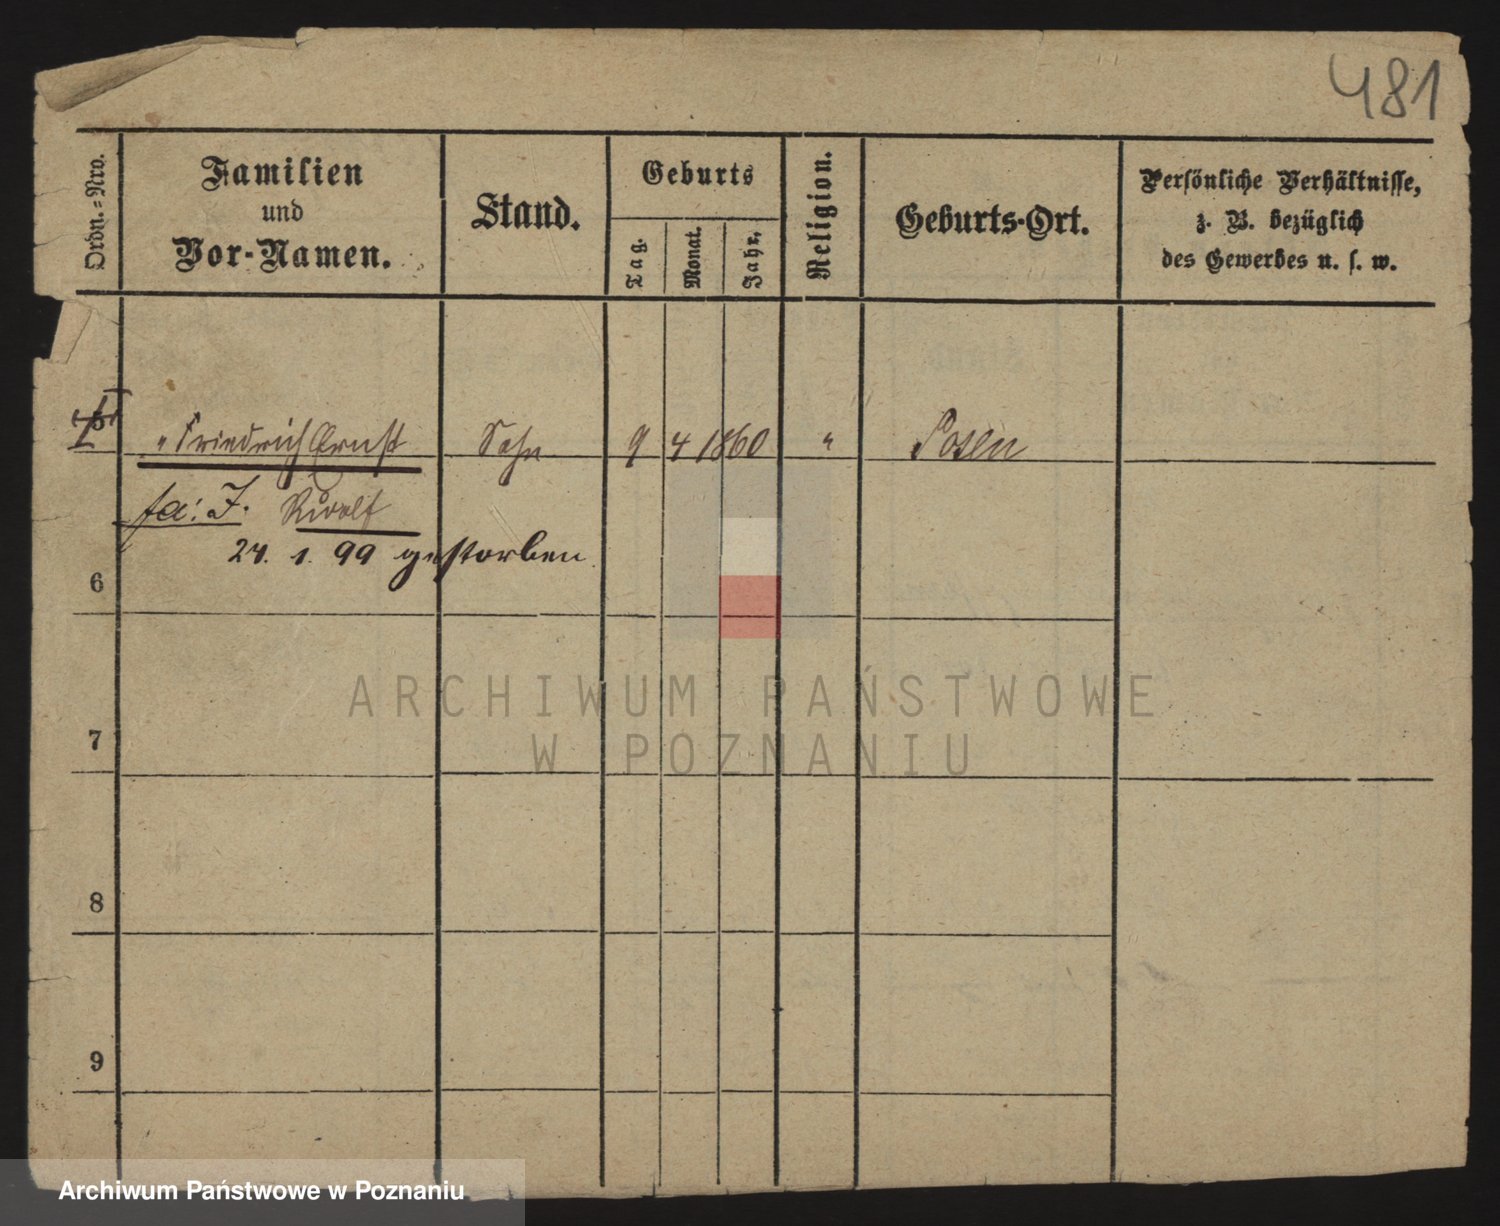 481
Ordn.-Nro.
Familien
und
Vor-Namen.
Stand.
Geburts
Tag.
Monat.
Jahr.
Religion.
Geburts-Ort.
Persönliche Verhältnisse,
z. B. bezüglich
des Gewerbes u. s. w.
" Friedrich Ernst Sohn 9 4 1860 " Posen
fa: J. Rudolf
24. 1. 99 gestorben
6
7
8
9
ARCHIWUM PAŃSTWOWE
W POZNANIU
Archiwum Państwowe w Poznaniu